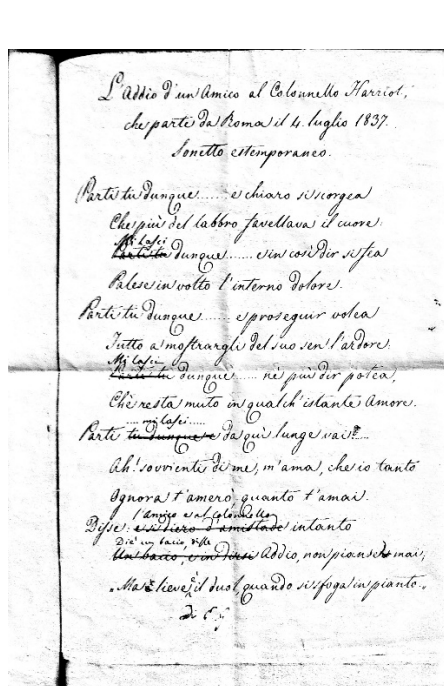 L'Addio d'un Amico al Colonnello Harriot,
che parte da Roma il 4. luglio 1837.
Sonetto estemporaneo.
Parti tu dunque....... e chiaro si scorgea
Che più del labbro favellava il cuore.
Mi lasci
Parti tu dunque....... e in così dir si fea
Palese in volto l'interno dolore.
Parti tu dunque....... e proseguir volea
Tutto a mostrargli del suo sen l'ardore.
Mi lasci
Parti tu dunque...... nè più dir potea,
Chè resta muto in qualch'istante Amore.
.... mi lasci .....
Parti tu dunque e da quì lunge vai?....
Ah! sovvienti di me, m'ama, che io tanto
Ignora t'amerò quanto t'amai.
l'amico e al Colonnello
Disse: e si diero d'amistade intanto
Diè un bacio, disse
Un bacio, e in dirsi Addio, non pianse mai,
"Ma è lieve il duol, quando si sfoga in pianto."